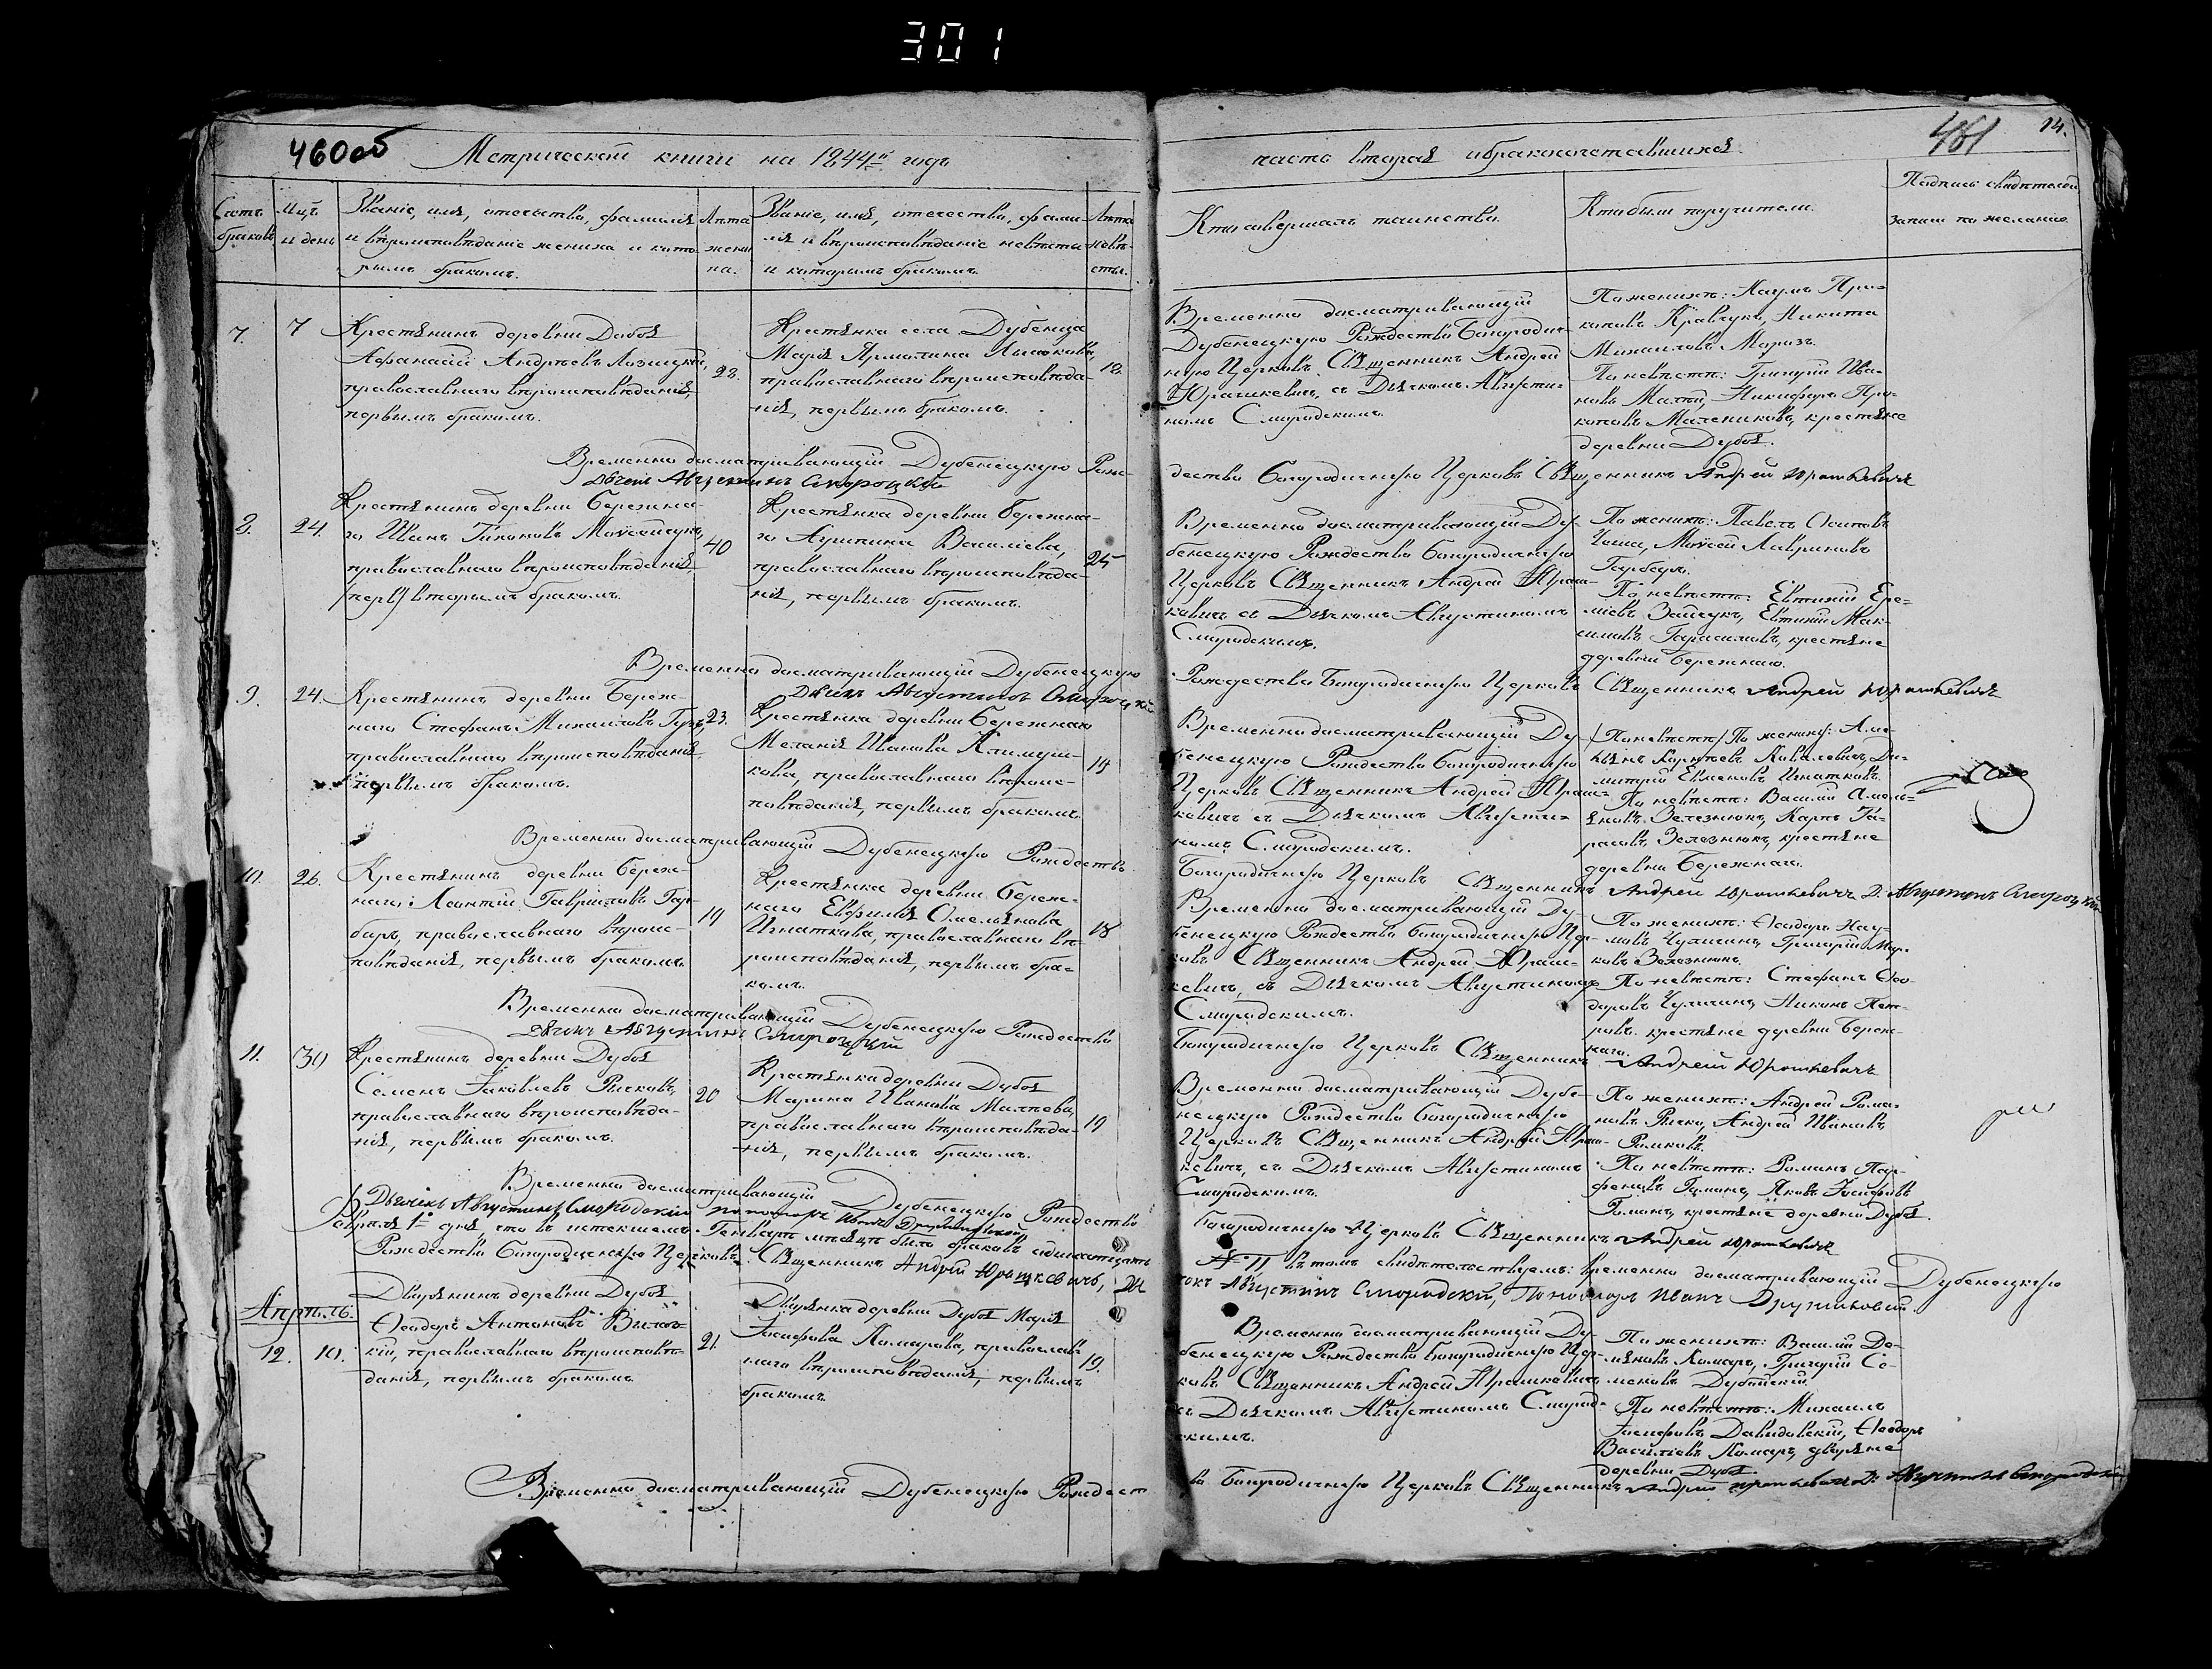 301
460об Метрической книги на 1844й годъ
часть вторая о бракосочетавшихся.
461
14.
Счетъ браковъ
Мцъ и день
Званіе, имя, отечество, фамилія
и вѣроисповѣданіе жениха и кото-
рымъ бракомъ.
Лѣта жени
ха.
Званіе, имя, отечество, фами
лія и вѣроисповѣданіе невѣсты
и которымъ бракомъ.
Лѣта
невѣ-
сты.
Кто совершалъ таинство.
Кто были поручители.
Подпись свидѣтелей
записи по желанію.
7.
7
Крестьянинъ деревни Дубоя
Афанасій Андрѣевъ Лозицкій,
православнаго вѣроисповѣданія,
первымъ бракомъ.
28.
Крестьянка села Дубенца
Марія Ярмолина
православнаго вѣроисповѣда-
нія, первымъ бракомъ.
18
Временно досматривающій
Дубенецкую Рождество Богородич-
ную Церковь Священникъ Андрей
Юрашкевичъ, съ Дьячкомъ Августи-
номъ Смородскимъ.
По женихѣ: Наумъ Про-
коповъ Кравчукъ, Никита
Михаиловъ Морозъ.
По невѣстѣ: Григорій Ива-
новъ Малѣй, Никифоръ Про-
коповъ крестьяне
деревни Дубоя.
Временно досматривающій Дубенецкую Рож-
дество Богородичную Церковь Священникъ Андрей Юрашкевичъ
Дьячекъ Августинъ Смородскій
8.
24.
Крестьянинъ деревни Бережна-
го Иванъ Тихоновъ Моисейчукъ,
православнаго вѣроисповѣданія,
/перв/ вторымъ бракомъ.
40
Крестьянка деревни Бережна-
го Агрипина Василіева,
православнаго вѣроисповѣда-
нія, первымъ бракомъ.
25
Временно досматривающій Ду-
бенецкую Рождество Богородичную
Церковь Священникъ Андрей Юраш-
кевичъ съ Дьячкомъ Августиномъ
Смородскимъ.
По женихѣ: Павелъ Осиповъ
Моисей Лавриновъ
Гарбаръ.
По невѣстѣ: Евтихій Ере-
міевъ Зайчукъ, Евтихій Мак-
симовъ Герасимовъ, крестьяне
деревни Бережнаго.
Временно досматривающій Дубенецкую
Рождество Богородичную Церковь Священникъ Андрей Юрашкевичъ
Дьячекъ Августинъ Смородскій
9.
24.
Крестьянинъ деревни Береж-
наго Стефанъ Михаиловъ
православнаго вѣроисповѣданія
первымъ бракомъ.
23.
Крестьянка деревни Бережнаго
Меланія Иванова Климуш-
кова, православнаго вѣроис-
повѣданія, первымъ бракомъ.
Временно досматривающій Ду-
бенецкую Рождество Богородичную
Церковь Священникъ Андрей Юраш-
кевичъ съ Дьячкомъ Августи-
номъ Смородскимъ.
/По невѣстѣ/ По жениху: Аме-
льянъ Карпѣевъ Ковалевичъ, Ди-
митрій Евменовъ Игнатковъ.
По невѣстѣ: Василій Амель-
яновъ Зелезнюкъ, Карпъ Та-
расовъ Зелезнюкъ, крестьяне
деревни Бережнаго.
Временно досматривающій Дубенецкую Рождество-
Богородичную Церковь Священникъ Андрей Юрашкевичъ Д: Августинъ Смородскій
10.
26.
Крестьянинъ деревни Береж-
наго Леонтій Гавріиловъ Гар-
баръ, православнаго вѣроис-
повѣданія, первымъ бракомъ.
19
Крестьянка деревни Береж-
наго Евфимія Омельянова
Игнаткова, православнаго вѣ-
роисповѣданія, первымъ бра-
комъ.
18
Временно досматривающій Ду-
бенецкую Рождество Богородичную Цер-
ковь Священникъ Андрей Юраш-
кевичъ, съ Дьячкомъ Августиномъ
Смородскимъ.
По женихѣ: Ѳеодоръ Нау-
мовъ Чуличинъ, Григорій Мар-
ковъ Зелезнюкъ.
По невѣстѣ: Стефанъ Ѳео-
доровъ Чуличинъ, Никонъ Пет-
ровъ крестьяне деревни Береж-
наго.
Временно досматривающій Дубенецкую Рождество
Богородичную Церковь Священникъ Андрей Юрашкевичъ
Дьячекъ Августинъ Смородскій
11.
30
Крестьянинъ деревни Дубоя
Семенъ Іаковлевъ Рычковъ,
православнаго вѣроисповѣда-
нія, первымъ бракомъ.
20
Крестьянка деревни Дубоя
Марина Иванова Малѣева,
православнаго вѣроисповѣда-
нія, первымъ бракомъ.
19
Временно досматривающій Дубе-
нецкую Рождество Богородичную
Церковь Священникъ Андрей Юраш-
кевичъ, съ Дьячкомъ Августиномъ
Смородскимъ.
По женихѣ: Андрей Рома-
новъ Андрей Ивановъ
Романовъ.
По невѣстѣ: Романъ Пар-
феновъ Романъ, Яковъ Іосифовъ
Романъ, крестьяне деревни Дубоя.
Временно досматривающій Дубенецкую Рождество
Богородичную Церковь Священникъ Андрей Юрашкевичъ
Дьячекъ Августинъ Смородскій Пономарь Иванъ Дружиловскій
Февраля 1го дня, что въ истекшемъ Генварѣ мѣсяцѣ было браковъ одинадцать
№ 11 въ томъ свидѣтельствуемъ: временно досматривающій Дубенецкую
Рождество Богородичную Церковь Священникъ Андрей Юрашкевичъ, Дья
чокъ Августинъ Смородскій, Пономарь Иванъ Дружиловскій.
Апрѣль.
12.
10.
Дворянинъ деревни Дубоя
Ѳеодоръ Антоновъ
кій, православнаго вѣроисповѣ-
данія, первымъ бракомъ
21.
Дворянка деревни Дубоя Марія
Іосифова Комарова, православ-
наго вѣроисповѣданія, первымъ
бракомъ.
19.
Временно досматривающій Ду-
бенецкую Рождество Богородичную Цер-
ковь Священникъ Андрей Юрашкевичъ
съ Дьячкомъ Августиномъ Смород-
скимъ.
По женихѣ: Василій Де-
мьяновъ Комаръ, Григорій Се-
меновъ Дубойскій.
По невѣстѣ: Михаилъ
Іосифовъ Давидовскій, Ѳеодоръ
Василіевъ Комаръ, дворяне
деревни Дубоя.
Временно досматривающій Дубенецкую Рождест
во Богородичную Церковь Священникъ Андрей Юрашкевичъ Д: Августинъ Смородскій